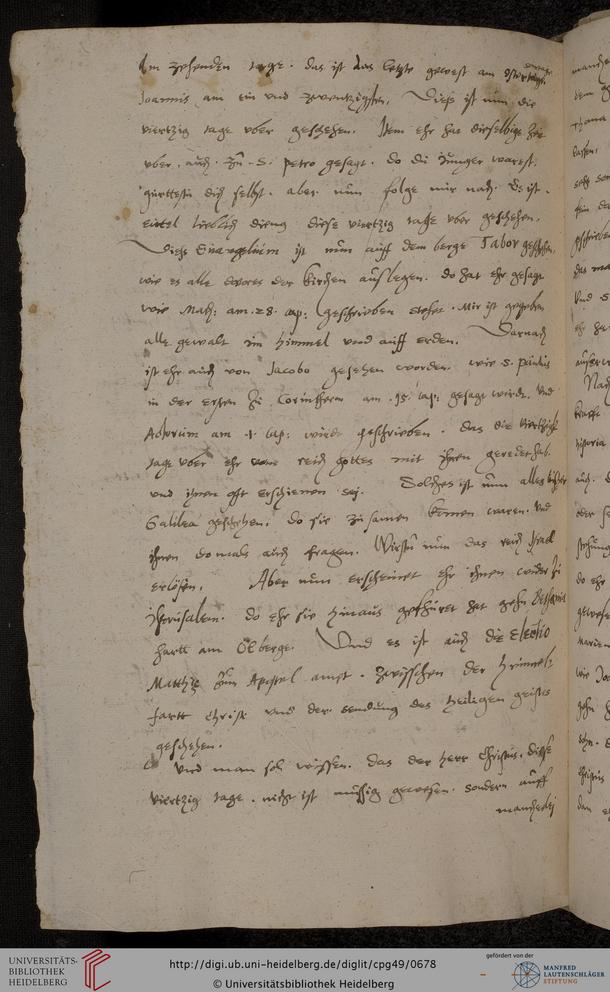 Im zehenden tage. das ist das letzte gewest am
Joannis am ein vnd zwentzigsten. Dieß ist nun die
viertzig tage vber geschehen. Item ehr hat dieselbige zeit
vber. auch. zu. S. Petro gesagt. do du Junger warest.
gurttestu dich selbst. aber nun folge mir nach. Es ist.
eittel lieblich dieng diese viertzig tage vber geschehen.
Dieß Euangelium ist nun auff dem berge Tabor geschehen,
wie es alle der Kirchen auslegen. do hat ehr gesagt
wie Math: am .28. cap: geschrieben stehet. Mir ist gegeben
alle gewalt im himmel vnd auff erden. Darnach
ist ehr auch von Jacobo gesehen worden. wie S. Paulus
in der ersten zu Corinthern am .15. cap: gesagt wirdt. Vnd
Actorum am .1. cap: wirdt geschrieben. das die viertzigk
tage vber ehr vom reich gottes mit ihnen geredet hab.
vnd ihnen offt erschienen sei. Solches ist nun alles
Galilea geschehen. do sie zusamen komen waren. Vnd
ihnen domals auch fragen. Wirstu nun das reich Israel
erlösen. Aber nun erscheinet ehr ihnen wider zu
Jherusalem. do ehr sie hinaus gefhüret hat gehn Bethania
hartt am Olberge. Vnd es ist auch die Electio
Matthie zum Apostel ampt. zwisschen der himmel-
fartt Christi vnd der sendung des heiligen geistes
geschehen.
Vnd man sol wissen. das der herr Christus. diesse
viertzig tage. nicht ist mussig gewesen. sondern auff
mancherlej
UNIVERSITÄTS-
BIBLIOTHEK
HEIDELBERG
http://digi.ub.uni-heidelberg.de/diglit/cpg49/0678
© Universitätsbibliothek Heidelberg
gefördert von der
MANFRED
LAUTENSCHLÄGER
STIFTUNG